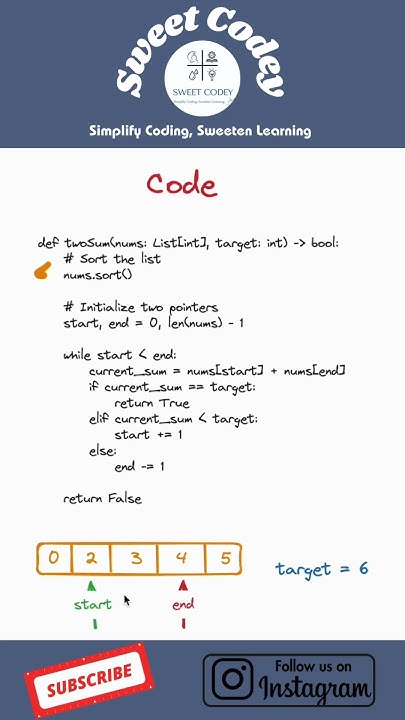 Sweet Codey
SWEET CODEY
Simplify Coding, Sweeten Learning
Simplify Coding, Sweeten Learning
Code
def twoSum(nums: List[int], target: int) -> bool:
# Sort the list
nums.sort()
# Initialize two pointers
start, end = 0, len(nums) - 1
while start < end:
current_sum = nums[start] + nums[end]
if current_sum == target:
return True
elif current_sum < target:
start += 1
else:
end -= 1
return False
0 2 3 4 5
target = 6
start end
SUBSCRIBE
Follow us on
Instagram